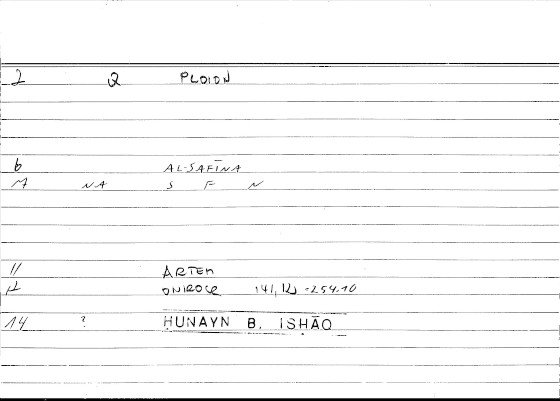 2 Q PLOION
6 AL-SAFĪNA
M NA S F N
11 ARTEM
12 ONIROCR 141,12 - 254.10
14 ? HUNAYN B. ISHĀQ